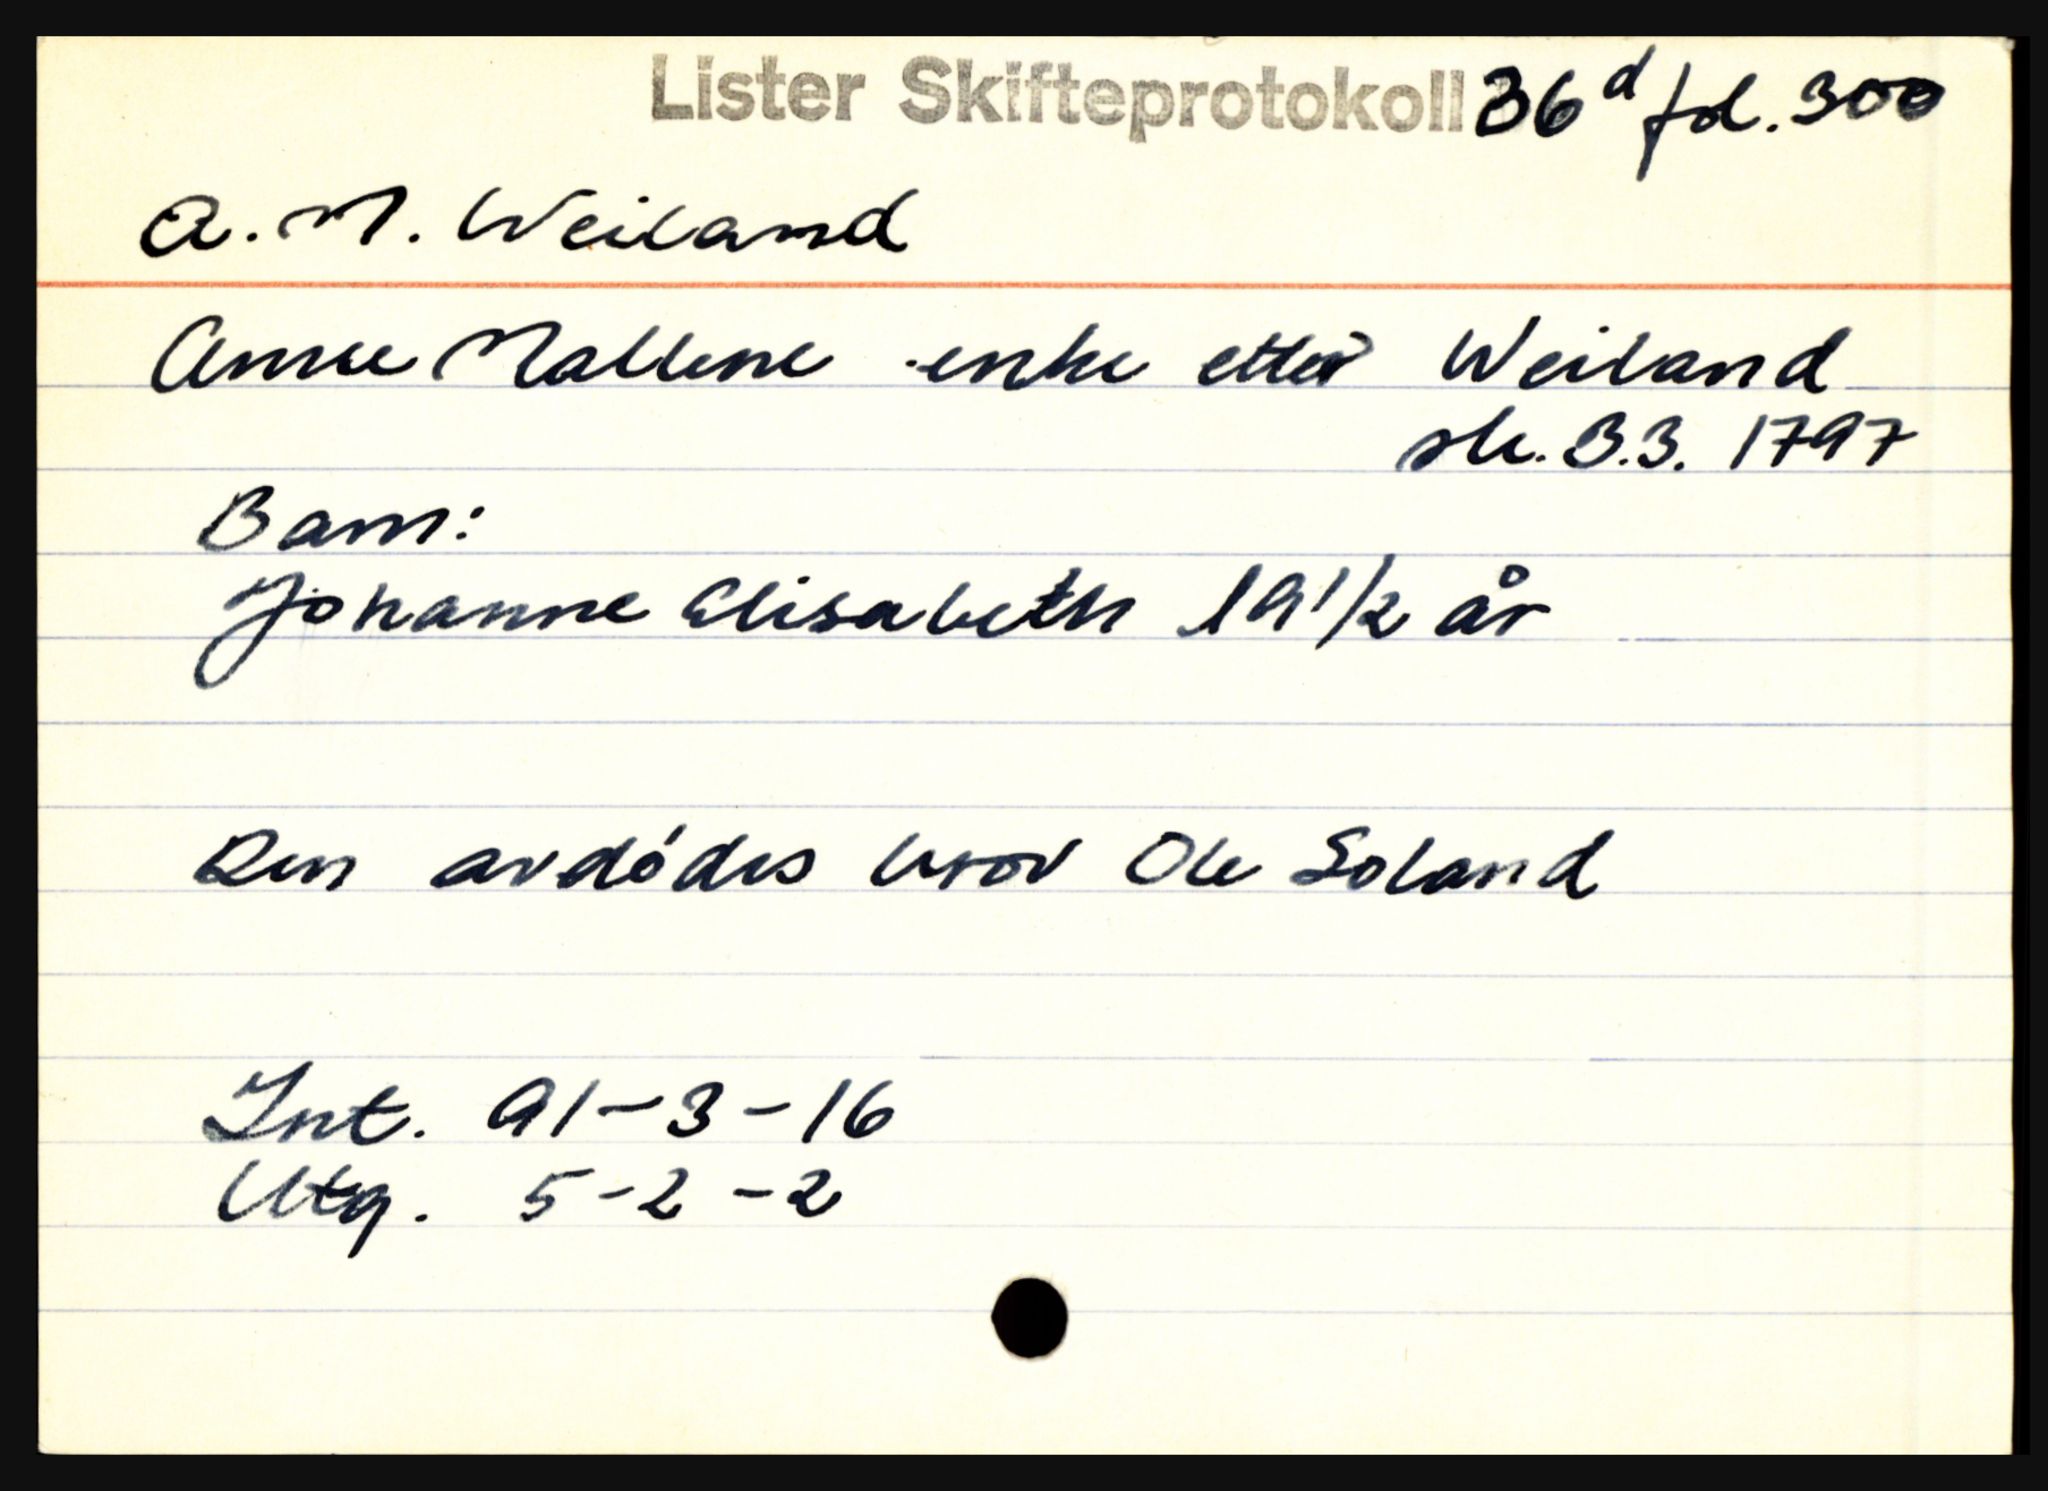 Lister Skifteprotokoll 36d fol. 300
A. M. Weiland
Anne Mallene enke etter Weiland
sk. 3.3. 1797
Barn:
Johanne Elisabeth 19 1/2 år
Den avdødes bror Ole Soland
Int. 91-3-16
Utg. 5-2-2